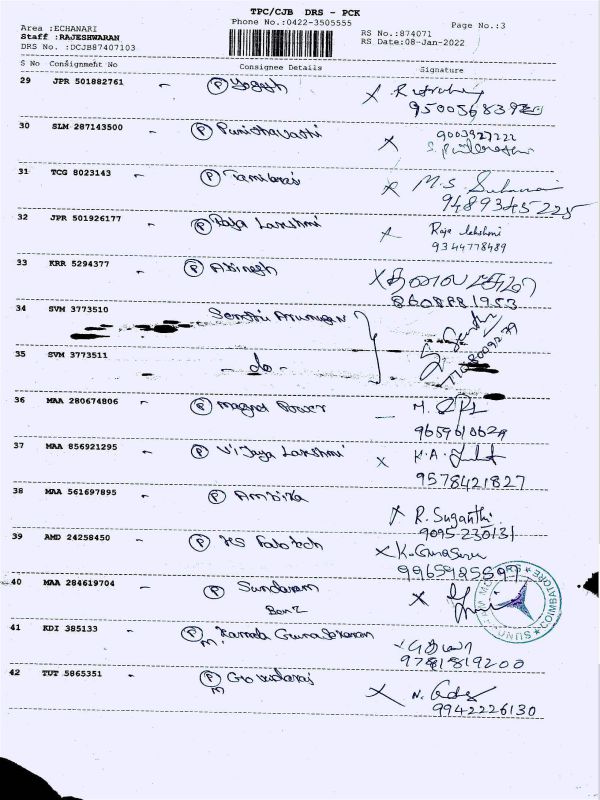 TPC/CJB DRS - PCK
Area :ECHANARI Phone No.:0422-3505555 Page No.:3
Staff :RAJESHWARAN RS No.:874071
DRS No. :DCJB87407103 RS Date:08-Jan-2022
S No Consignment No Consignee Details Signature
29 JPR 501882761 - P Yogesh X
30 SLM 287143500 - P 9003927222
X
31 TCG 8023143 - P Tamilarasi X M.S.
9489345225
32 JPR 501926177 - P Raja Lakshmi X Raja lakshmi
9344778489
33 KRR 5294377 - P Abinesh X
8608881953
34 SVM 3773510 Senthil Arumugan
35 SVM 3773511 - do -
36 MAA 280674806 - P Magnet Power M.
37 MAA 856921295 - P Vijaya Lakshmi X K.A.
9578421827
38 MAA 561697895 - P Ambika
X R. Suganthi
9095-230131
39 AMD 24258450 - P KS Fabtech X K. Gunaseru
40 MAA 284619704 - P Sundaram X
Benz
SUNDARAM MOTORS ★ COIMBATORE ★
41 KDI 385133 - P Kamala Gunasekaran
M X
9781819200
42 TUT 5865351 - P Govindaraj
M X N.
9942226130